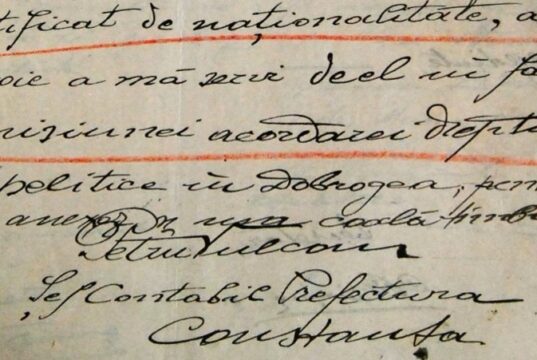 tificat de naționalitate, a
oie a mă servi de el în fa
misiunei acordarei dreptu
politice în Dobrogea, pen
anexez una coală timb
Petru Vulcan
Șef Contabil Prefectura
Constanța